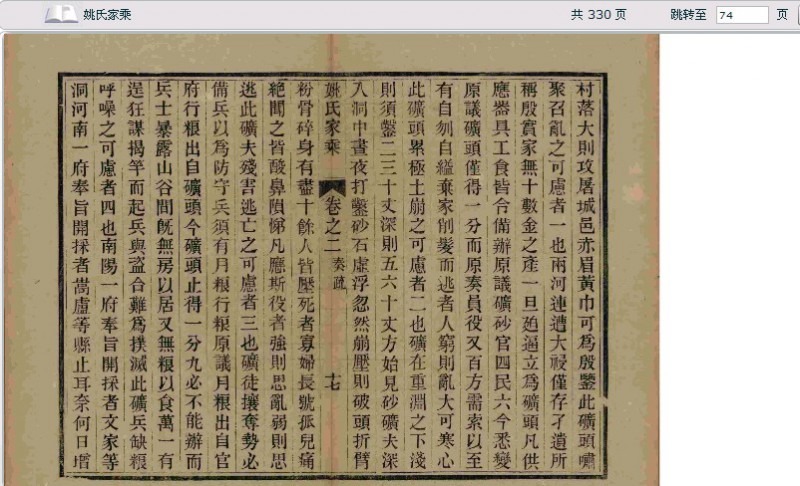 姚氏家乘
共 330 页
跳转至 74 页
村落大則攻屠城邑赤眉黃巾可爲殷鑒此礦頭嘯
聚召亂之可慮者一也兩河連遭大祲僅存孑遺所
稱殷實家無十數金之產一旦廹逼立爲礦頭凡供
應器具工食皆令備辦原議礦砂官四民六今悉變
原議礦頭僅得一分而原奏員役又百方需索以至
有自刎自縊棄家削髮而逃者人窮則亂大可寒心
此礦頭累極土崩之可慮者二也礦在重淵之下淺
則須鑿二三十丈深則五六十丈方始見砂礦夫深
入洞中晝夜打鑿砂石虛浮忽然崩壓則破頭折臂
姚氏家乘 卷之二 奏疏 十七
粉骨碎身有盡十餘人皆壓死者寡婦長號孤兒痛
絕聞之皆酸鼻隕悌凡應斯役者強則思亂弱則思
逃此礦夫殘害逃亡之可慮者三也礦徒攘奪勢必
備兵以爲防守兵須有月粮行粮原議月粮出自官
府行粮出自礦頭今礦頭止得一分九必不能辦而
兵士暴露山谷間旣無房以居又無粮以食萬一有
逞狂謀揭竿而起兵與盜合難爲撲滅此礦兵缺粮
呼噪之可慮者四也南陽一府奉旨開採者文家等
洞河南一府奉旨開採者嵩盧等縣止耳奈何日增